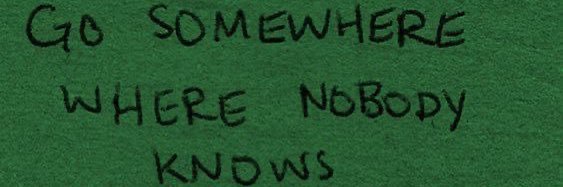 GO SOMEWHERE
WHERE NOBODY
KNOWS